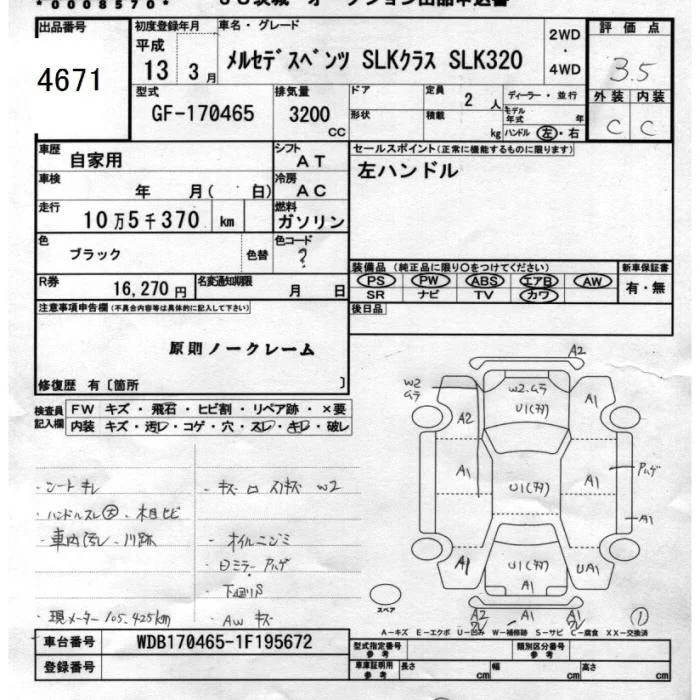 *0008570*
出品番号
4671
初度登録年月
平成
13 3月
車名・グレード
メルセデスベンツ SLKクラス SLK320
2WD
・
4WD
評価点
3.5
外装 内装
C C
型式
GF-170465
排気量
3200
CC
ドア
形状
定員
2 人
積載
kg
ディーラー・並行
モデル
年式 年
ハンドル 左・右
車歴
自家用
シフト
AT
車検
年 月( 日)
冷房
AC
走行
10万5千370 km
燃料
ガソリン
色
ブラック
色替
色コード
?
セールスポイント(正常に機能するものに限ります)
左ハンドル
R券
16,270 円
名変通知期限
月 日
装備品(純正品に限り○をつけてください)
PS PW ABS エアB AW
SR ナビ TV カワ
新車保証書
有・無
後日品
注意事項申告欄(不具合内容等は具体的に記入して下さい)
原則ノークレーム
修復歴 有〔箇所 〕
検査員
記入欄
FW キズ・飛石・ヒビ割・リペア跡・×要
内装 キズ・汚レ・コゲ・穴・スレ・キレ・破レ
・シートキレ
・ハンドルスレ大・木目ヒビ
・車内汚レ・川跡
・現メーター 105,425km
・オイルニジミ
・Dミラー アハゲ
・下回りS
・AWキズ
A2
W2
W2.ムラ
U1(才)
A2
A1
A1
A1
U1(才)
A1
A1
U1(才)
UA1
A1
A1
A2
A1
A1
スペア
①
A-キズ E-エクボ U-凹み W-補修跡 S-サビ C-腐食 XX-交換済
車台番号
WDB170465-1F195672
登録番号
型式指定番号
参考
類別区分番号
参考
車庫証明用
参考
長さ cm
幅 cm
高さ cm